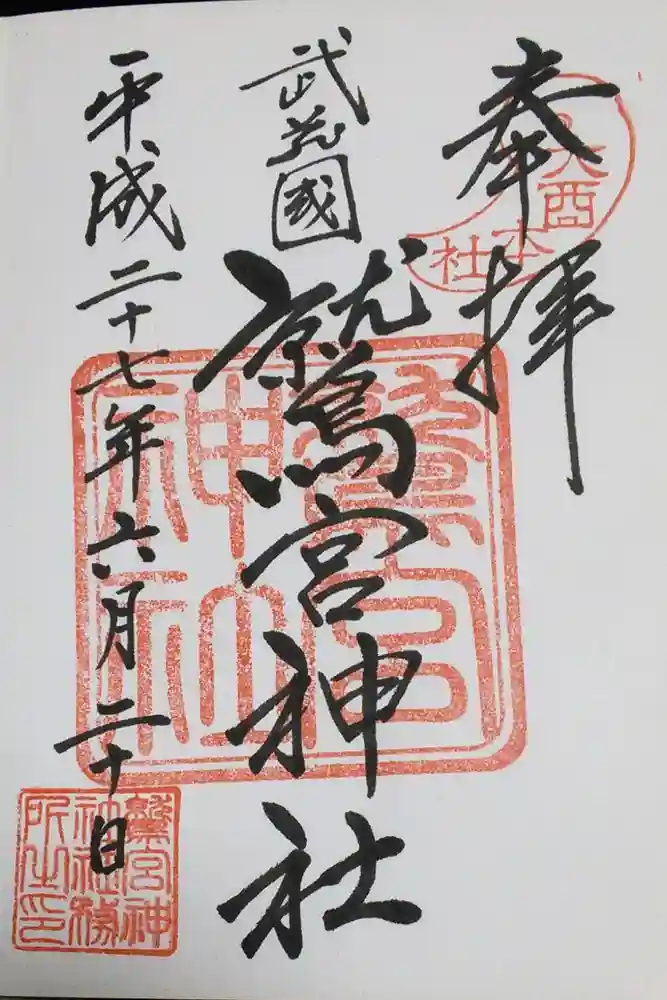 奉拝
大酉本社
武蔵國
鷲宮神社
鷲宮神社
平成二十七年六月二十日
鷲宮神社社務所之印